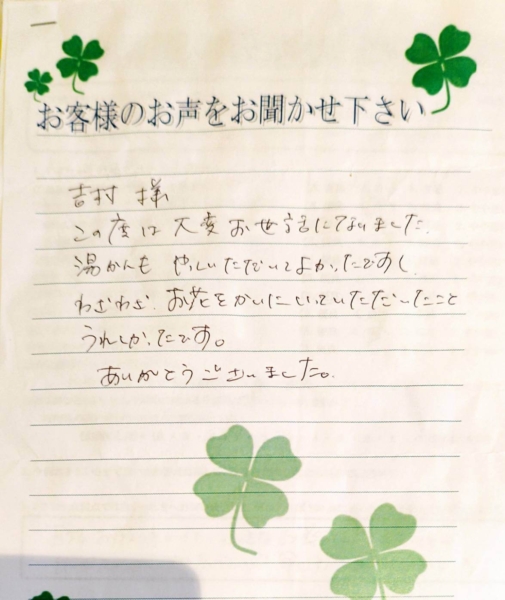 お客様のお声をお聞かせ下さい
吉村 様
この度は 大変 お世話になりました.
湯かんも やっていただいてよかったですし
わざわざ、お花をかいにいっていただいたこと
うれしかったです。
ありがとうございました。